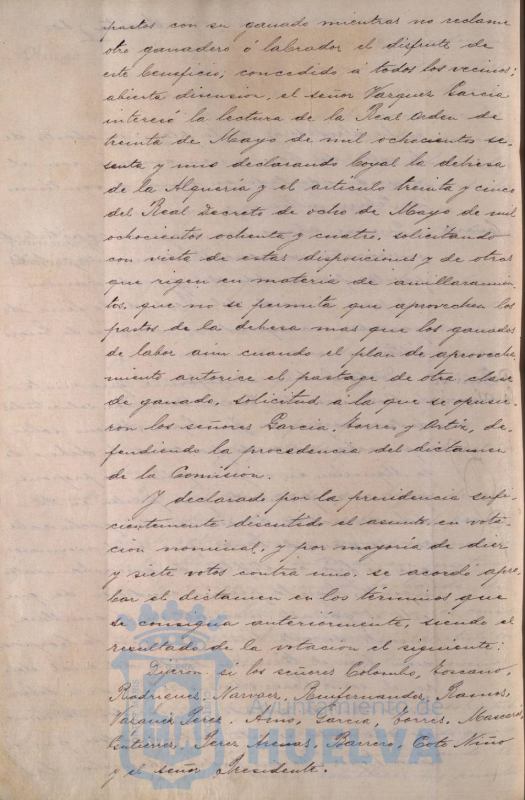 pastos con su ganado mientras no reclame
otro ganadero ó labrador el disfrute de
este beneficio; concedido á todos los vecinos;
abierta discusion, el señor Vazquez Garcia
interesó la lectura de la Real orden de
treinta de Mayo de mil ochocientos se-
senta y seis declarando boyal la dehesa
de la Alqueria y el articulo treinta y cinco
del Real Decreto de ocho de Mayo de mil
ochocientos ochenta y cuatro, solicitando
con vista de estas disposiciones y de otras
que rigen en materia de amillaramien-
tos, que no se permita que aprovechen los
pastos de la dehesa mas que los ganados
de labor aun cuando el plan de aprovecha-
miento autorice el pastage de otra clase
de ganado, solicitud á la que se opusie-
ron los señores Garcia, Torres y Ortiz, de-
fendiendo la procedencia del dictamen
de la Comision.
Y declarado por la presidencia sufi-
cientemente discutido el asunto, en vota-
cion nominal, y por mayoria de diez
y siete votos contra uno, se acordó apro-
bar el dictamen en los términos que
se consigna anteriormente, siendo el
resultado de la votacion el siguiente:
Dijeron si los señores Colombo, Toscano,
Rodriguez, Narvaez, Benifernandez, Ramos,
Vazquez Perez, Garcia, Torres,
Gutierrez, Perez Arenas, Barrero, Coto, Niño
y el señor Presidente.
Ayuntamiento de
HUELVA